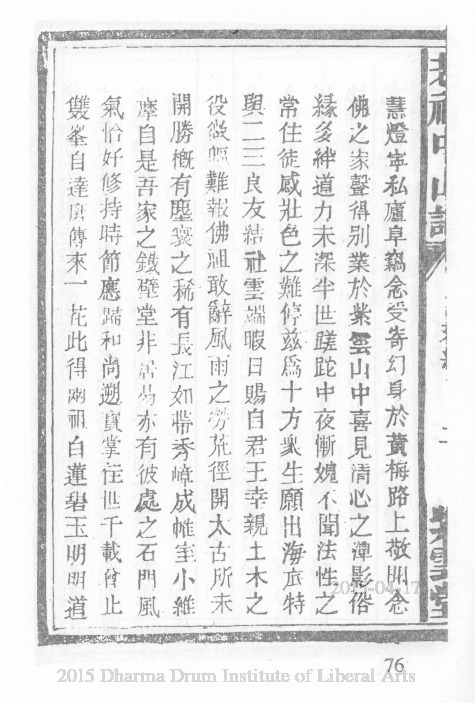 慧燈寧私廬阜竊念受寄幻身於黃梅路上敬開念
佛之家聲得別業於紫雲山中喜見清心之潭影俗
緣多絆道力未深半世蹉跎中夜慚媿不聞法性之
常住徒感壯色之難停茲為十方眾生願出海衣特
與二三良友結社雲端暇日賜自君王幸親土木之
役微軀難報佛祖敢辭風雨之勞荒徑開太古所未
開勝槪有塵寰之稀有長江如帶秀嶂成帷室小維
摩自是吾家之鐵壁堂非居易亦有彼處之石門風
氣恰好修持時節應歸和尚遡寶掌住世千載會止
雙峯自達磨傳來一花此得兩祖白蓮碧玉明明道
老祖中山誌
紫雲堂
76
2015 Dharma Drum Institute of Liberal Arts